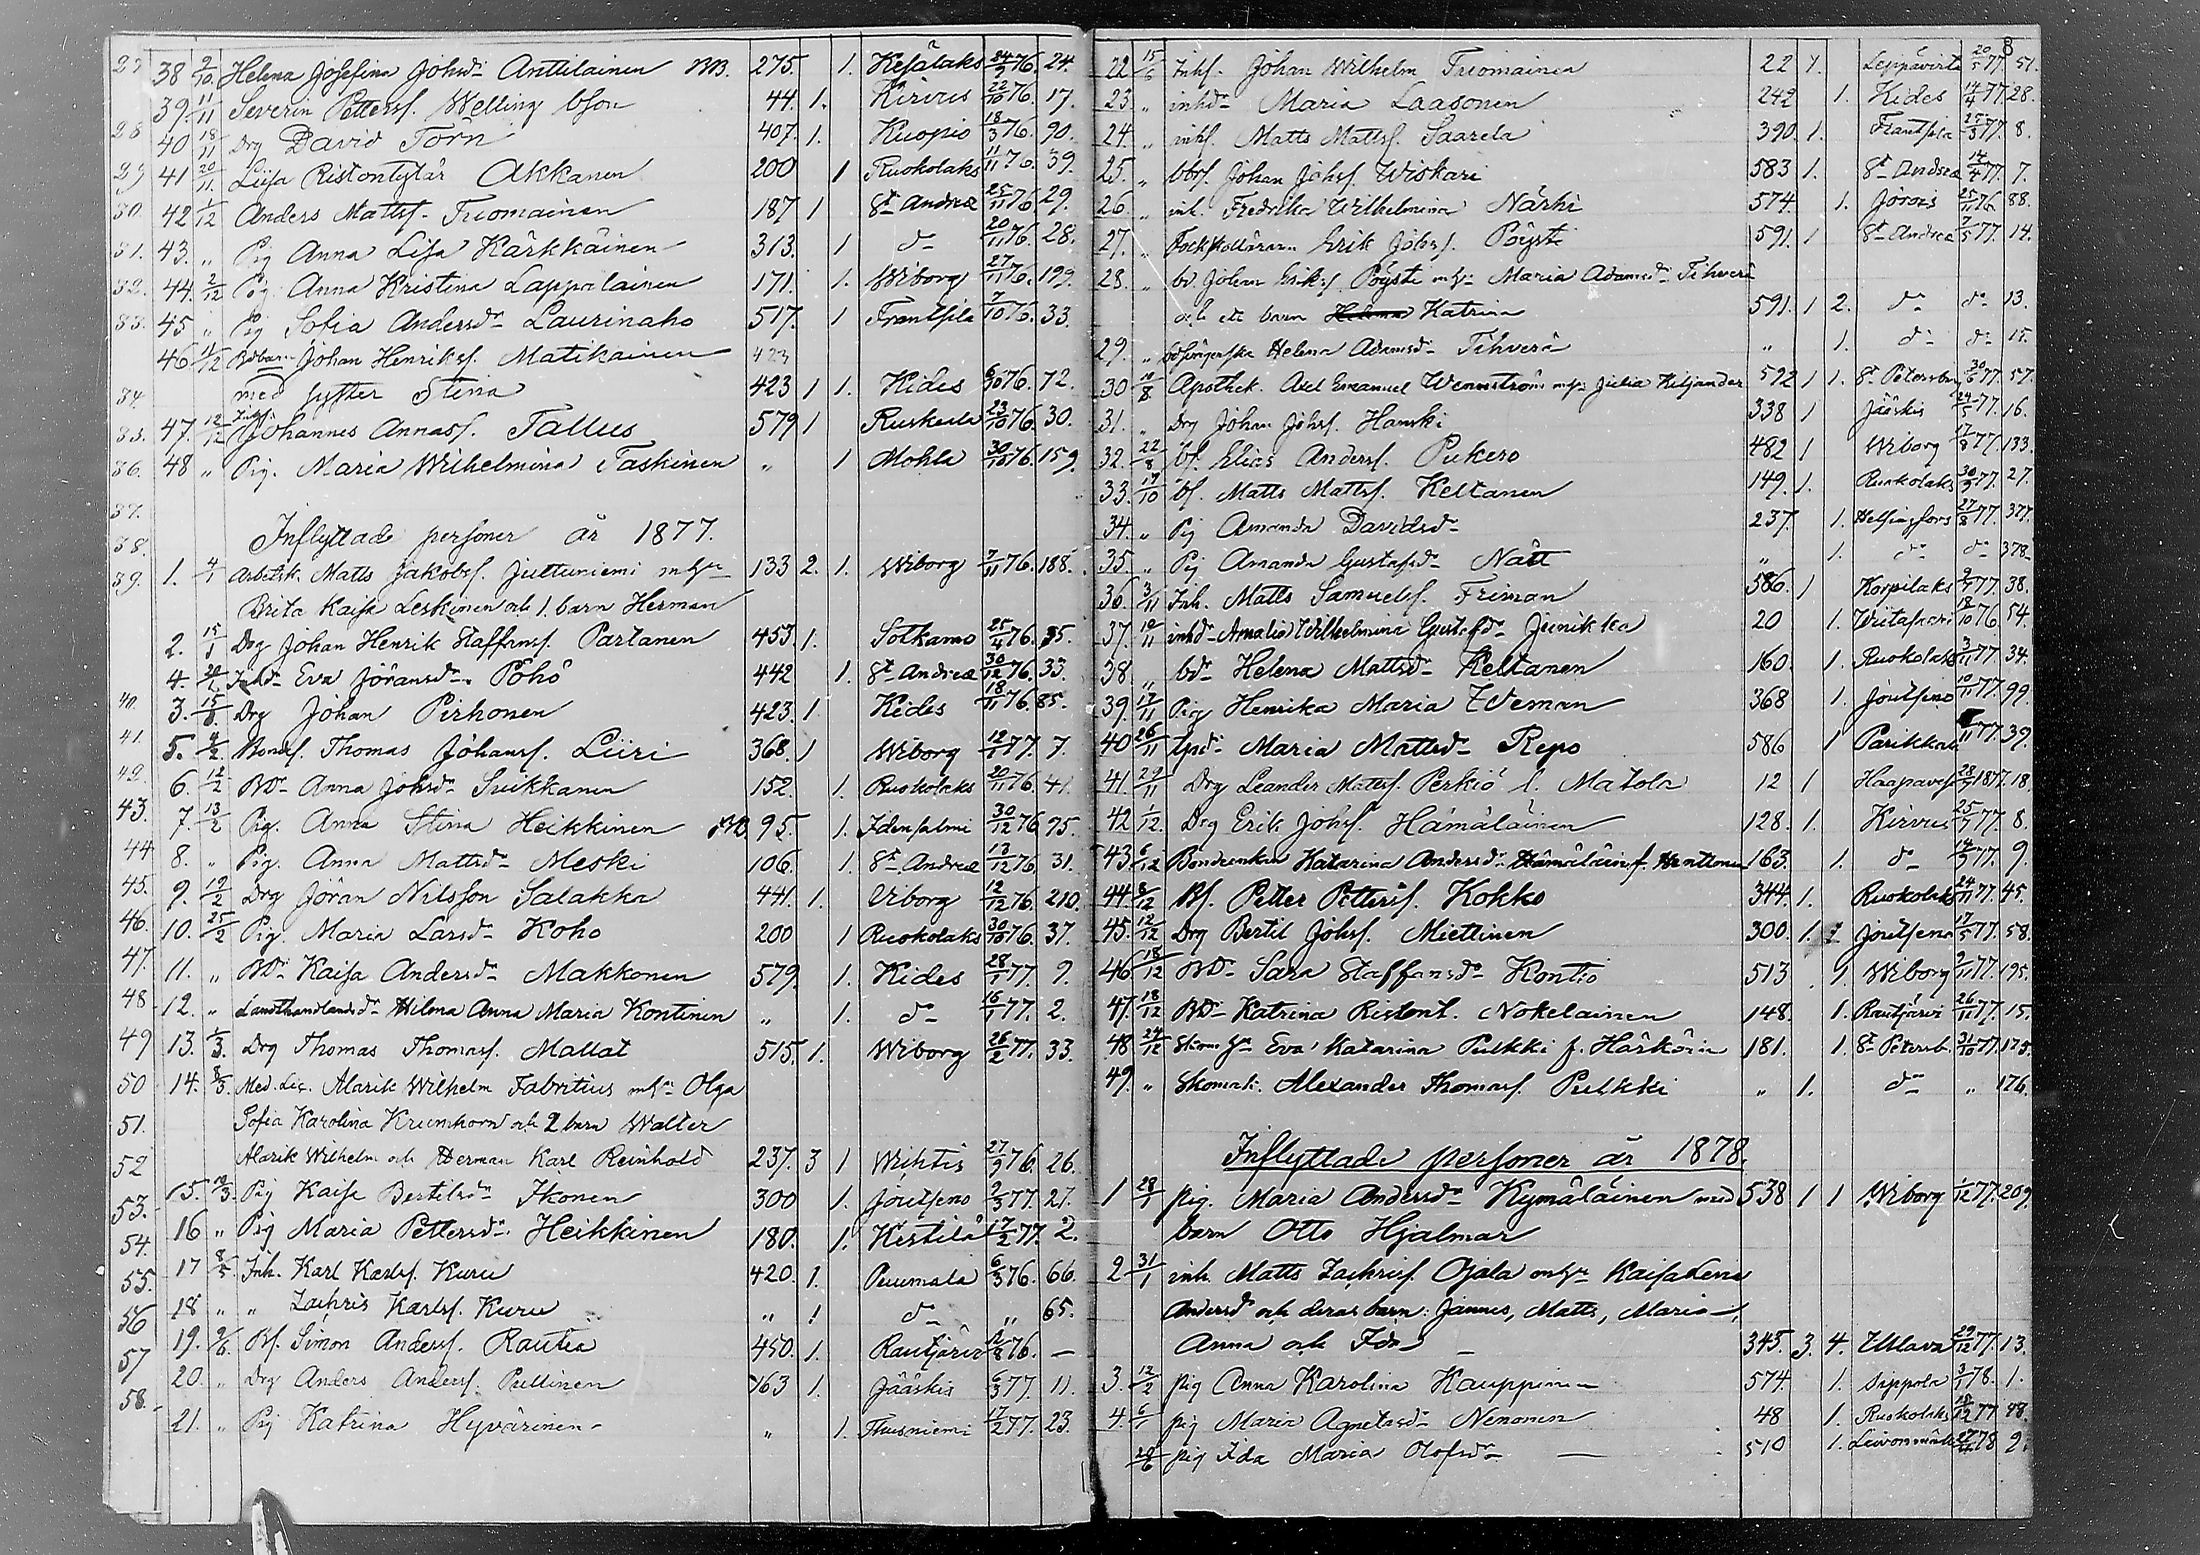 8
27 38 9/10 Helena Josefina Johsdr Anttilainen 275. 1. Kesälaks 24/9 76. 24.
39 11/11 Severin Pettersf. Welling bson 44. 1. Kirvus 22/10 76. 17.
28 40 18/11 Drg David Torn 407. 1. Kuopio 18/3 76. 90.
29 41 20/11 Liisa Ristontytär Akkanen 200 1 Ruokolaks 11/11 76. 39.
30. 42 1/12 Anders Mattsf. Tuomainen 187 1 St Andreæ 25/11 76 29.
31. 43. " Pig Anna Lisa Kärkkäinen 313. 1 do 20/11 76. 28.
32. 44. 2/12 Pig Anna Kristina Lappalainen 171. 1. Wiborg 27/11 76. 199.
33. 45 " Pig Sofia Andersdr Laurinaho 517. 1 Frantsila 7/10 76. 33.
46 11/12 Johan Henriksf. Matikainen 423
34. med syster Stina 423 1 1. Kides 6/10 76. 72.
35. 47. 12/12 Johannes Annasf. Tallus 579 1 Ruskeala 23/10 76. 30.
36. 48 " Pig. Maria Wilhelmina Taskinen " 1 Mohla 30/10 76. 159.
37.
38. Inflyttade personer år 1877.
39. 1. 4/1 Arbetsk. Matts Jakobsf. Jultuniemi m hu 133 2. 1. Wiborg 7/11 76. 188.
Brita Kaisa Leskinen och 1. barn Herman
2. 15/1 Drg Johan Henrik Staffansf. Partanen 453. 1. Sotkamo 25/4 76. 35.
4. Inhdr Eva Jöransdr Pöhö 442 1. St Andreæ 30/12 76. 33.
40. 3. Drg Johan Pirhonen 423. 1 Kides 18/11 76. 85.
41. 5. 9/2 Bondsf. Thomas Johansf. Liiri 368. 1 Wiborg 12/1 77. 7.
42. 6. 12/2 Bdr Anna Johsdr Suikkanen 152. 1. Ruokolaks 20/11 76. 41.
43. 7. 13/2 Pig. Anna Stina Heikkinen 95. 1. Idensalmi 30/12 76 75.
44 8. " Pig. Anna Mattsdr Meski 106. 1. St Andreæ 13/12 76. 31.
45. 9. 19/2 Drg Jöran Nilsson Salakka 441. 1. Viborg 12/12 76. 210.
46. 10. 25/2 Pig. Maria Larsdr Koho 200 1 Ruokolaks 30/10 76. 37.
47. 11. " Bdr Kaisa Andersdr Makkonen 579. 1. Kides 28/1 77. 9.
48 12. " Landthandlandr Helena Anna Maria Kontinen " 1. do 16/1 77. 2.
49 13. 1/3 Drg Thomas Thomasf. Mallat 515. 1. Wiborg 26/2 77. 33.
50 14. 8/3 Med. Lic. Alarik Wilhelm Fabritius m hu Olga
51. Sofia Karolina Krumhorn och 2 barn Walter
52 Alarik Wilhelm och Herman Karl Reinhold 237. 3 1 Wihtis 27/9 76. 26.
53. 15. Pig Kaisa Bertilsdr Ikonen 300 1. Joutseno 9/3 77. 27.
54. 16 " Pig Maria Pettersdr Heikkinen 180. 1. Kestilä 17/2 77. 2.
55. 17 8/5 Inh. Karl Karlsf. Kuru 420. 1. Puumala 6/3 76. 66.
56 18 " " Zachris Karlsf. Kuru " 1 do " 65.
57 19. 9/6 Bf. Simon Andersf. Rautia 450. 1. Rautjärvi 76. —
58. 20. " Drg Anders Andersf. Pullinen 463 1. Jääskis 6/3 77. 11.
21. " Pig Katrina Hyvärinen " 1. Thusniemi 17/2 77. 23.
22 15/6 Inhf. Johan Wilhelm Tuomainen 22 1. Leppävirta 20/5 77 51.
23 " inhdr Maria Laasonen 242 1. Kides 14/4 77. 28.
24. " inhf. Matts Mattsf. Saarela 390. 1. Frantsila 25/3 77. 8.
25. " Johan Johsf. Wiskari 583 1. St Andreæ 14/4 77. 7.
26 " inh. Fredrika Wilhelmina Närhi 574. 1. Jorois 25/11 76 88.
27. " Folkskollararen Erik Johsf. Pöysti 591. 1 St Andreæ 7/5 77. 14.
28. " bd Johan Eriksf Pöysti m hu Maria Adamsdr Tihverä
och ett barn Katrina 591. 1 2. do do 13.
29. " Helena Adamsdr Tihverä " 1. do do 15.
30 10/8 Apothek. Axel Emanuel Wennström m hu Julia Kiljander 592 1 1. St Petersburg 30/6 77. 57.
31. " Drg Johan Johsf. Hanski 338 1 Jääskis 24/5 77. 16.
32. 22/8 bf. Elias Andersf. Pukero 482 1 Wiborg 17/8 77. 133.
33. 19/10 bf. Matts Mattsf. Keltanen 149. 1. Ruokolaks 30/9 77. 27.
34. " Pig Amanda Davidsdr 237 1. Helsingfors 27/8 77. 377.
35. " Pig Amanda Gustafsdr Nätt " 1. do do 378.
36. 3/11 Inh. Matts Samuelsf. Friman 586. 1 Korpilaks 9/7 77. 38.
37. 10/11 inhdr Amalia Wilhelmina Gustafsdr Junikka 20 1. Wiitasaari 18/10 76. 54.
38. " bdr Helena Mattsdr Keltanen 160. 1. Ruokolaks 3/11 77. 34.
39. 17/11 Pig Henrika Maria Weman 368 1. Joutseno 10/11 77. 99.
40 26/11 Maria Mattsdr Repo 586 1 Parikkala 77 39.
41. 29/11 Drg Leander Mattsf. Perkiö l. Matola 12 1 Haapavesi 28/9 1877. 18.
42 1/12. Drg Erik Johsf. Hämäläinen 128. 1. Kirvus 25/7 77. 8.
43. 6/12 Bondeenkan Katarina Andersdr Hämäläin f. Henttonen 163. 1. do 77. 9.
44. 8/12 Bf. Petter Pettersf. Kokko 344. 1. Ruokolaks 24/11 77. 45.
45. 12/12 Drg Bertil Johsf. Miettinen 300. 1. 1 Joutseno 17/5 77. 58.
46 18/12 Bdr Sara Staffansdr Kontio 513 1. Wiborg 9/11 77. 195.
47. 18/12 Bdr Katrina Ristont. Nokelainen 148. 1. Rautjärvi 26/11 77. 15.
48 24/12 Skom hu Eva Katarina Pulkki f. Härkönen 181. 1. St Petersb. 31/10 77. 175.
49. " Skomak. Alexander Thomasf. Pulkki " 1. do " 176.
Inflyttade personer år 1878.
1 28/1 pig. Maria Andersdr Kymäläinen med 538 1 1 Wiborg 1/12 77. 209.
barn Otto Hjalmar
2 31/1 inh. Matts Zachrisf. Ojala m hu Kaisa Lena
Andersdr och deras barn: Jannes, Matts, Maria,
Anna och Ida 345. 3. 4. Ullava 29/12 77. 13.
3. 12/2 pig Anna Karolina Kauppinen 574. 1. Sippola 3/1 78. 1.
4. pig Maria Agnetasdr Nenonen 48 1. Ruokolaks 77 48.
28/6 pig Ida Maria Olofsdr — 510 1. Leivonmäki 78 2.